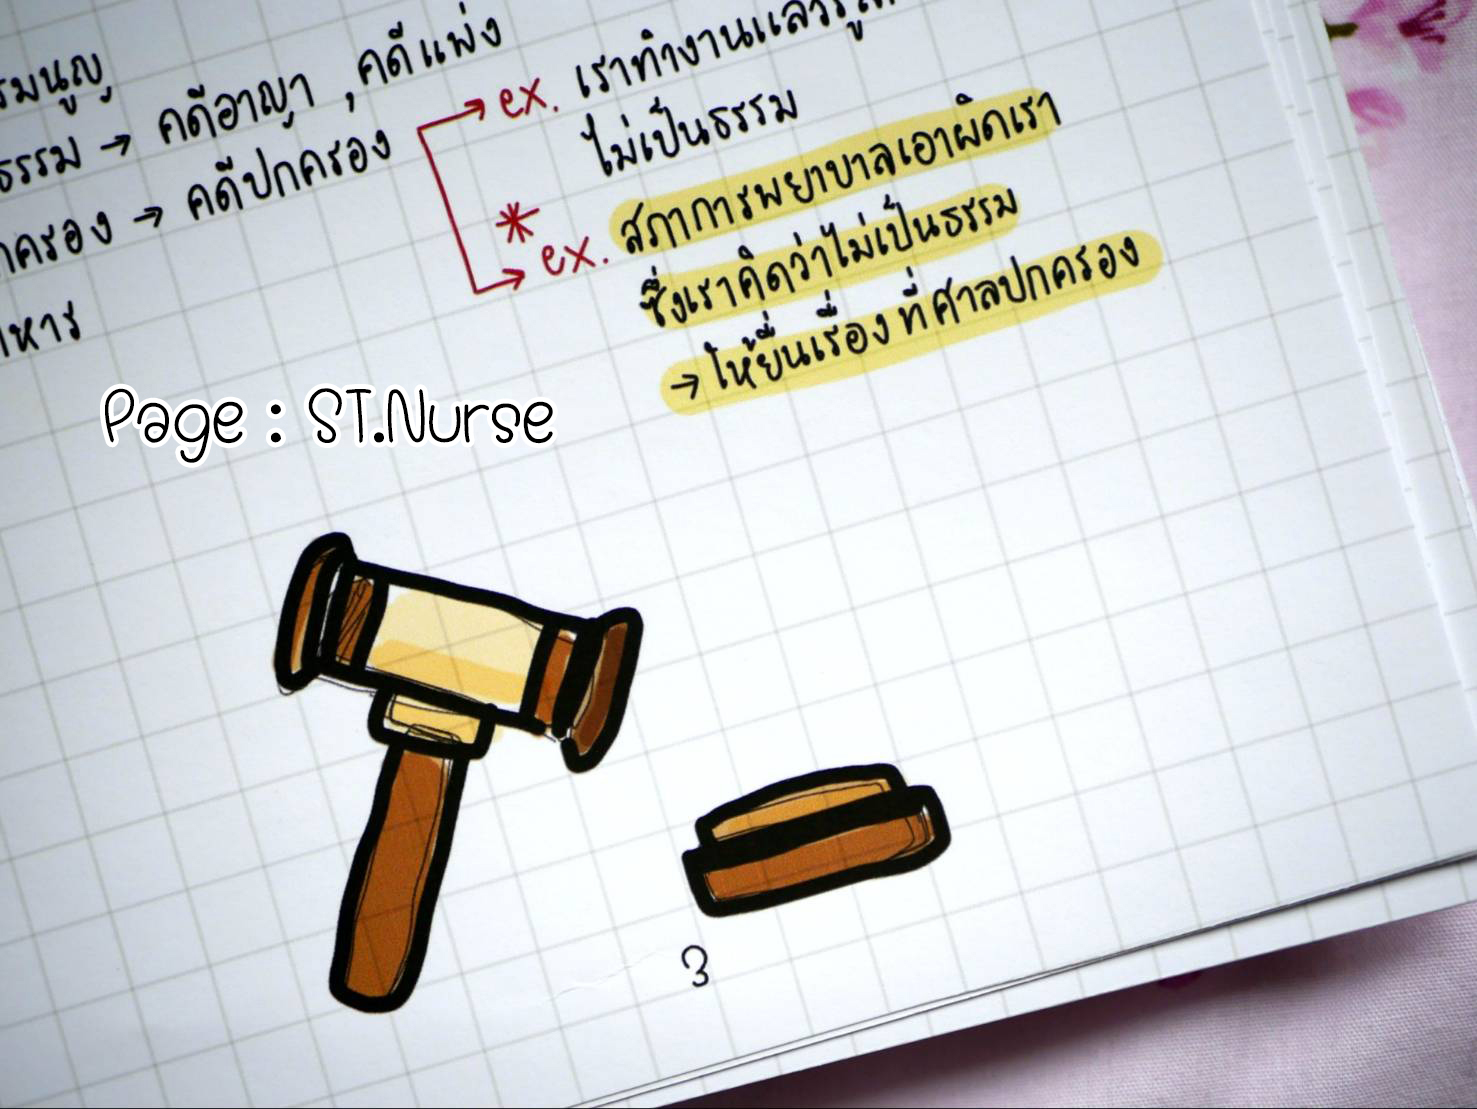 คดีอาญา , คดีแพ่ง
→ คดีปกครอง
ex. เราทำงานแล้ว
ไม่เป็นธรรม
* ex. สภาการพยาบาลเอาผิดเรา
ซึ่งเราคิดว่าไม่เป็นธรรม
→ ให้ยื่นเรื่องที่ศาลปกครอง
Page : ST.Nurse
3